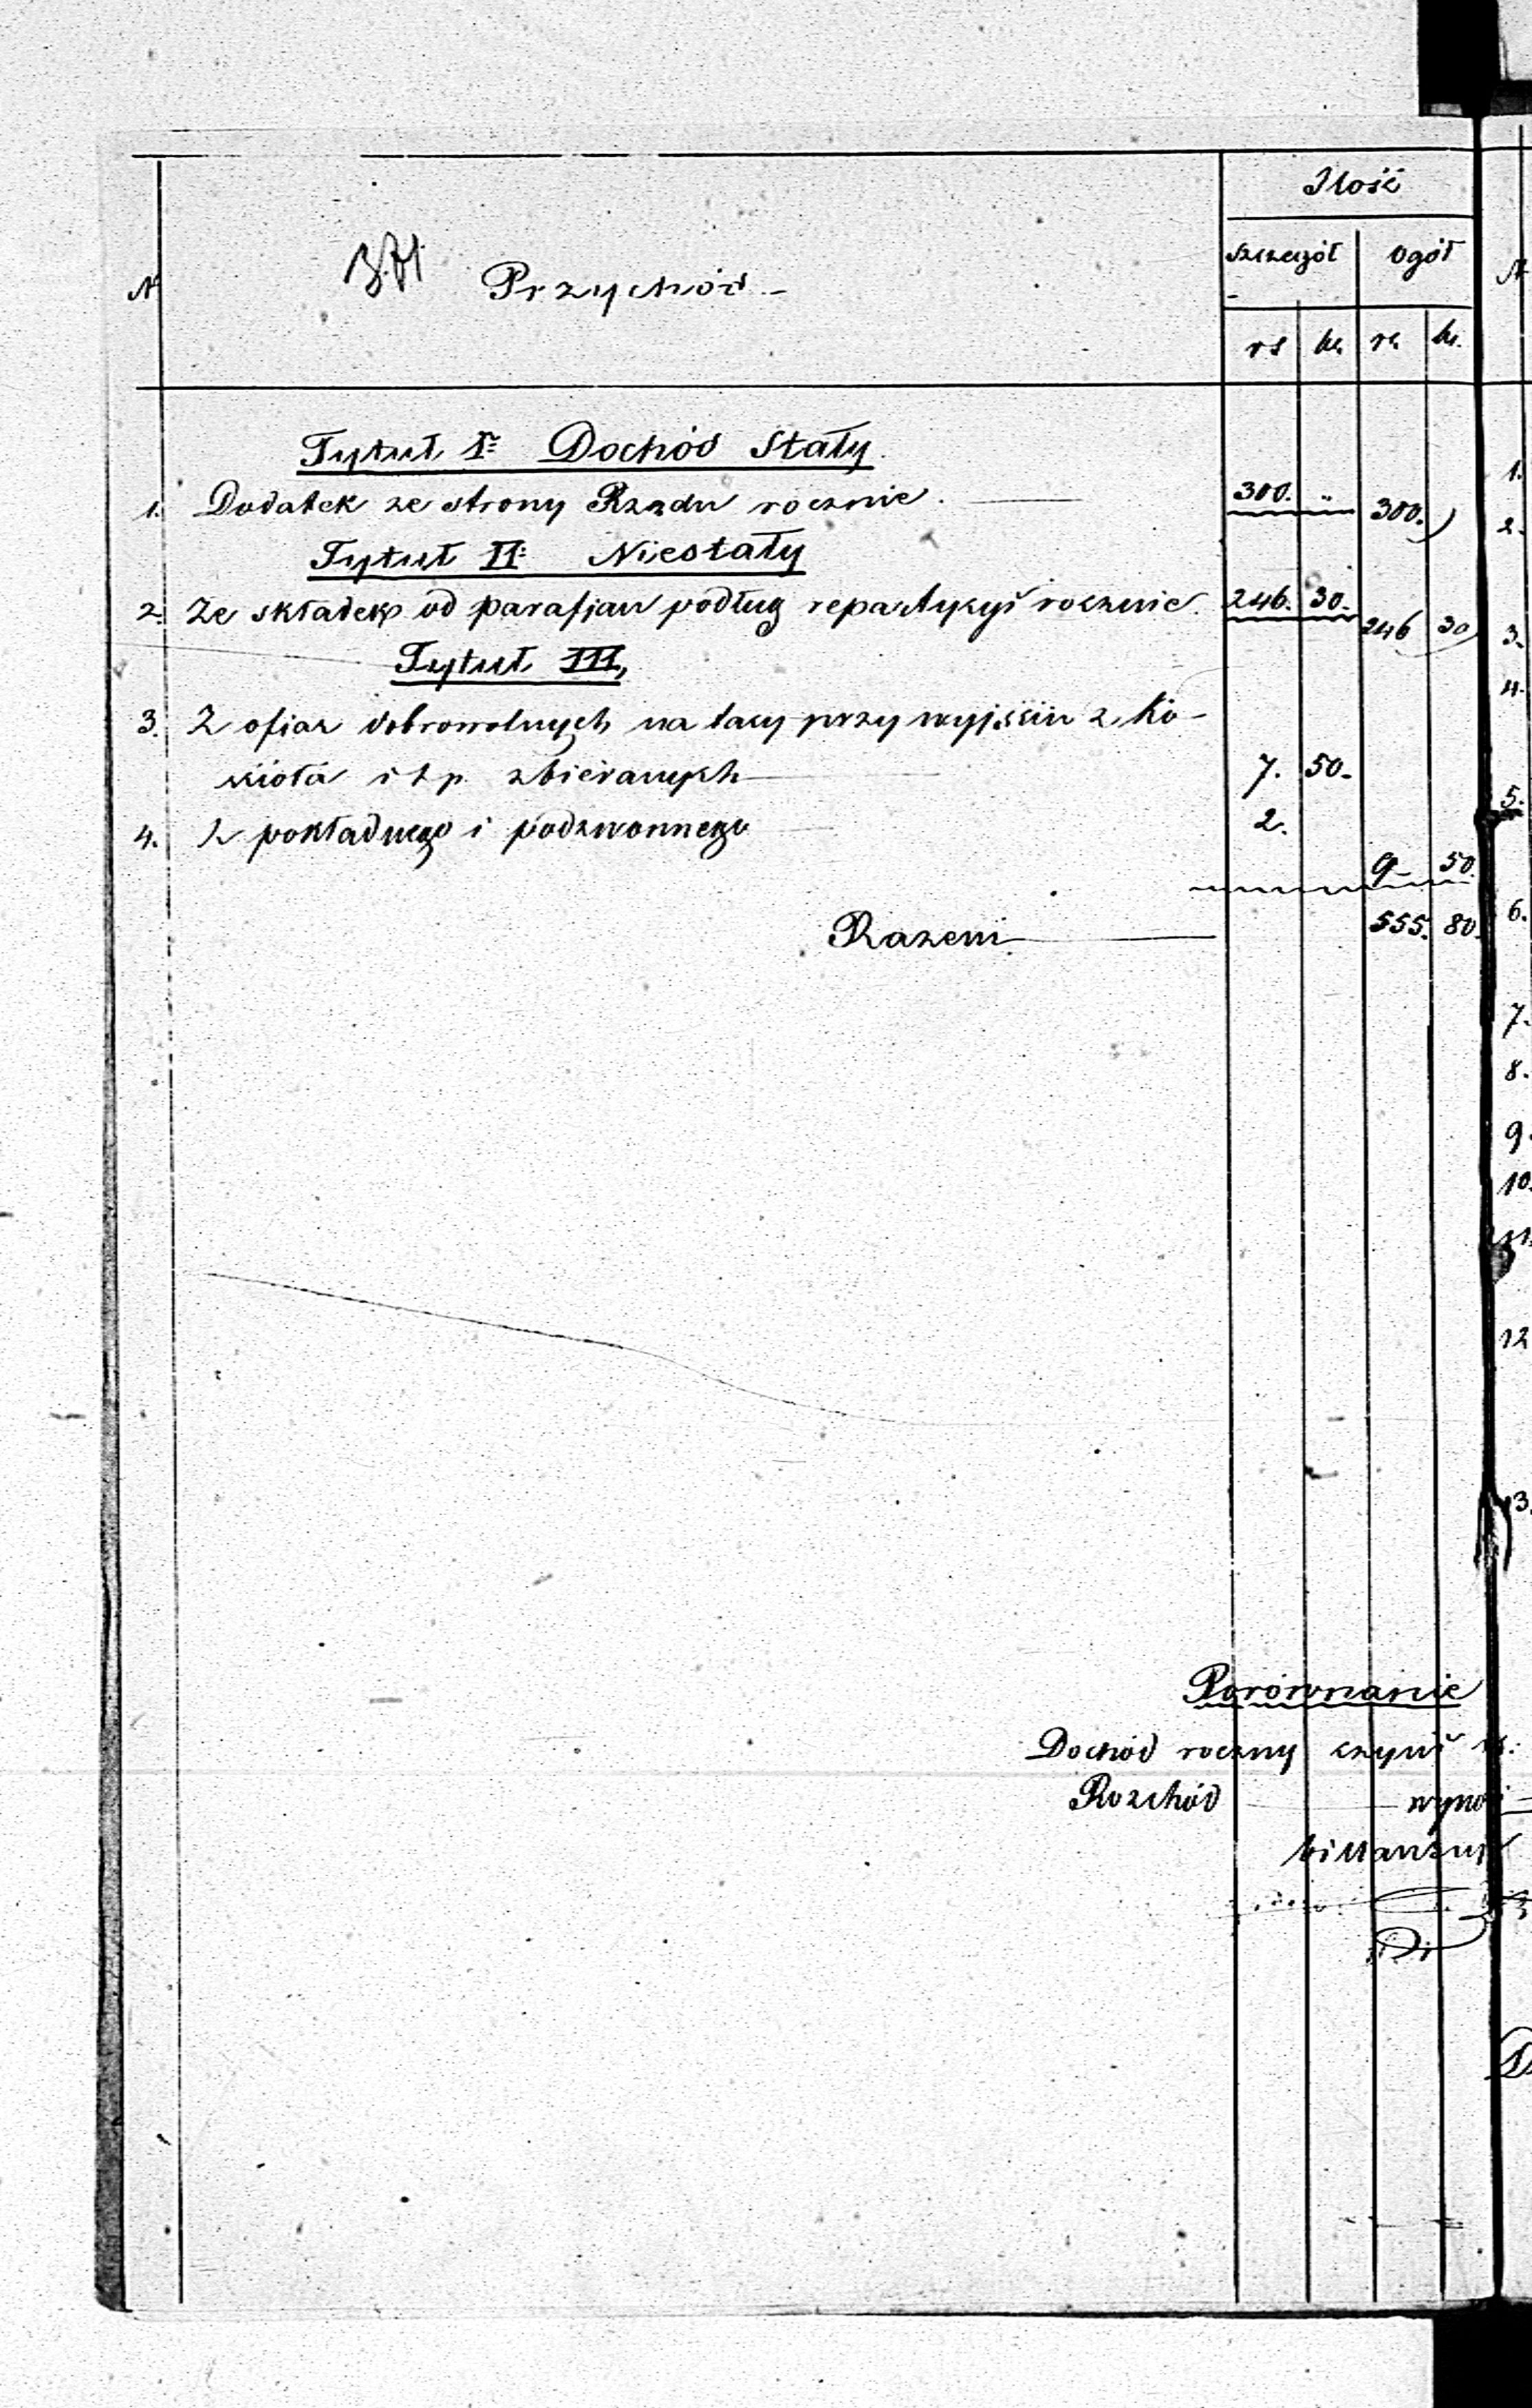 Ilość
szczegół ogół
N Przychód
rs k. rs. k.
Tytuł I: Dochód Stały.
1. Dodatek ze strony Rządu rocznie. 300. „ 300.
Tytuł II: Niestały
2. Ze składek od parafjan podług repartycyi rocznie. 246. 30. 246 30
Tytuł III,
3. Z ofiar dobrowolnych na tacy przy wyjściu z Ko-
ścioła i t p. zbieranych 7. 50.
4. Z pokładnego i podzwonnego 2.
9 50.
Razem 555. 80.
Porównanie
Dochód roczny czyni rs:
Rozchód wynosi
billansuje
1.
2.
3.
4.
5.
6.
7.
8.
9.
10.
11.
12
13.